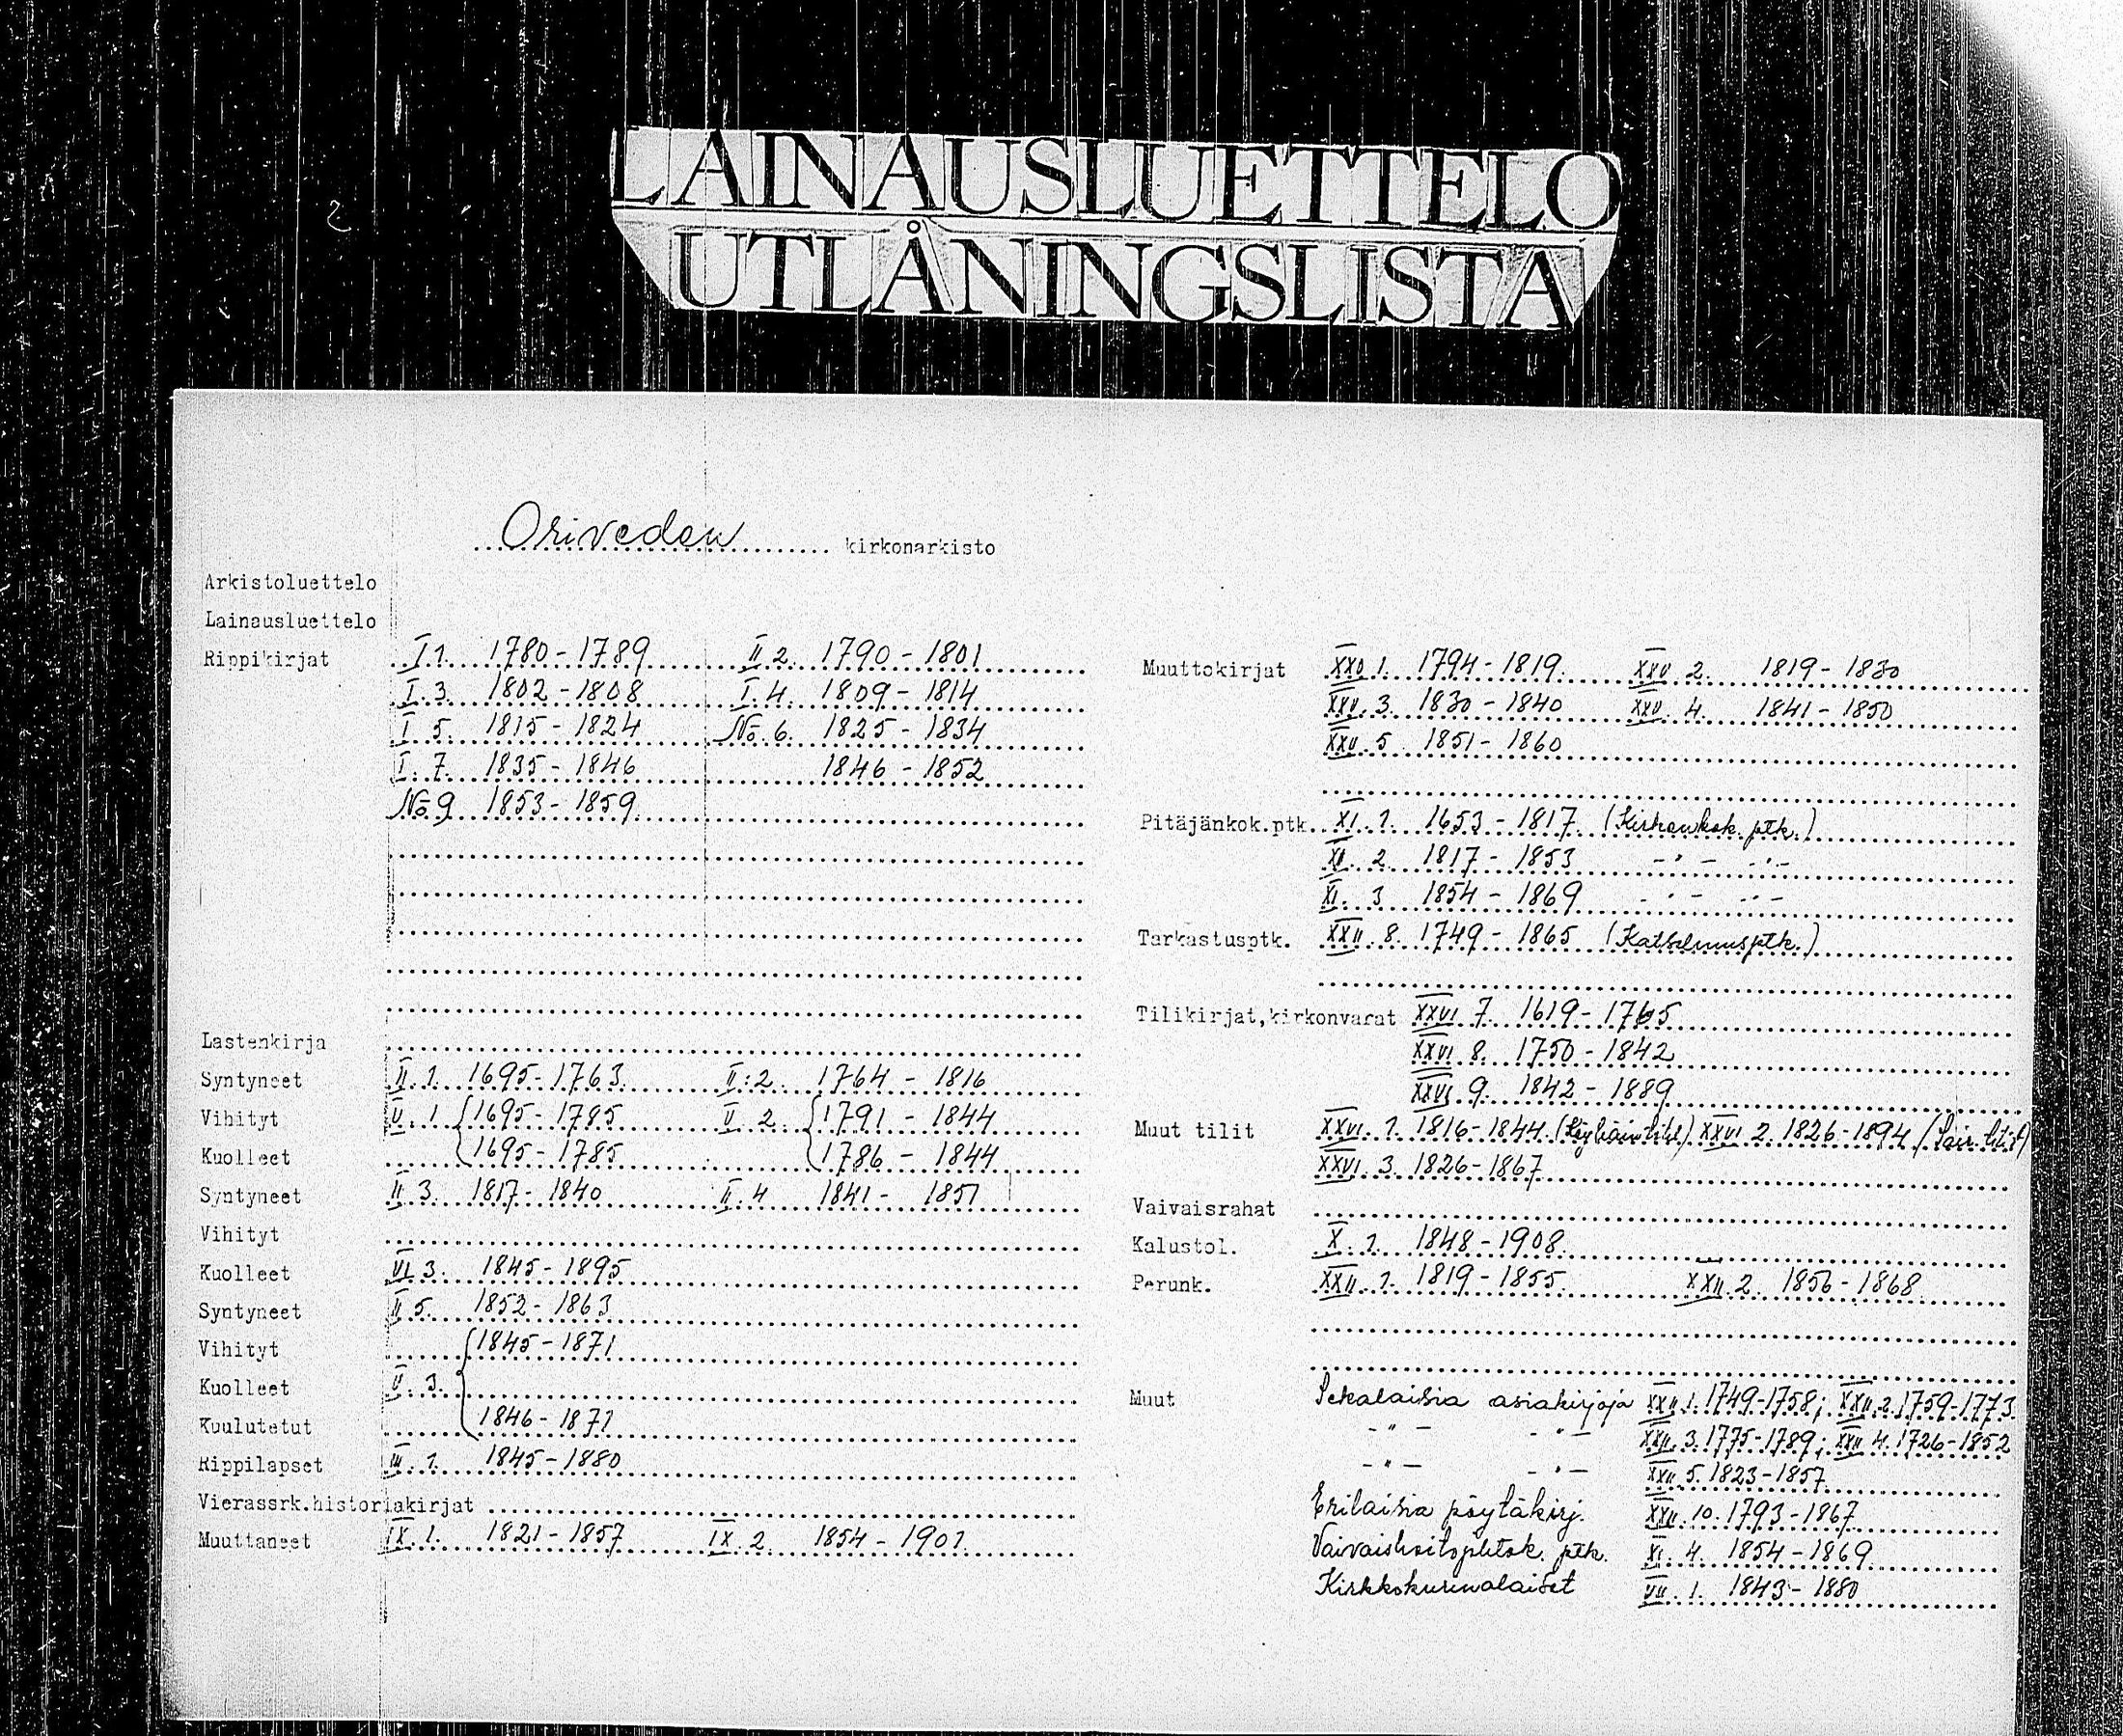 LAINAUSLUETTELO
UTLÅNINGSLISTA
Oriveden kirkonarkisto
Arkistoluettelo
Lainausluettelo
Rippikirjat I 1. 1780-1789 II 2. 1790-1801
I. 3. 1802-1808 I. 4. 1809-1814
I 5. 1815-1824 No. 6. 1825-1834
I. 7. 1835-1846 1846-1852
No 9 1853-1859
Lastenkirja
Syntyneet II. 1. 1695-1763 II: 2. 1764-1816
Vihityt V. 1 1695-1785 V. 2. 1791-1844
Kuolleet 1695-1785 1786-1844
Syntyneet II 3. 1817-1840 II. 4 1841-1851
Vihityt
Kuolleet VI. 3. 1845-1895
Syntyneet II 5. 1852-1863
Vihityt 1845-1871
Kuolleet V. 3.
Kuulutetut 1846-1871
Rippilapset III. 1. 1845-1880
Vierassrk.historiakirjat
Muuttaneet IX. 1. 1821-1857 IX. 2 1854-1901
Muuttokirjat XXV 1. 1794-1819. XXV 2. 1819-1830
XXV. 3. 1830-1840 XXV. 4. 1841-1850
XXV. 5 1851-1860
Pitäjänkok.ptk. XI. 1. 1653-1817 (Kirkonkok. ptk.)
XI. 2. 1817-1853 -"- -"-
XI. 3 1854-1869 -"- -"-
Tarkastusptk. XXII. 8. 1749-1865 (Katselmusptk.)
Tilikirjat,kirkonvarat XXVI 7. 1619-1765
XXVI 8. 1750-1842
XXVI. 9. 1842-1889
Muut tilit XXVI. 1. 1816-1844 XXVI 2 1826-1894
XXVI. 3. 1826-1867
Vaivaisrahat
Kalustol. X. 1. 1848-1908
Perunk. XXII. 1. 1819-1855. XXII. 2. 1856-1868
Muut Sekalaisia asiakirjoja XXII. 1. 1749-1758; XXII. 2. 1759-1773
-"- -"- XXII. 3. 1775-1789; XXII 4. 1726-1852
-"- -"- XXII. 5. 1823-1857
Erilaisia pöytäkirj. XXII. 10. 1793-1867
Vaivaishoito ptk. XI. 4. 1854-1869
Kirkkokurinalaiset VII. 1. 1843-1880